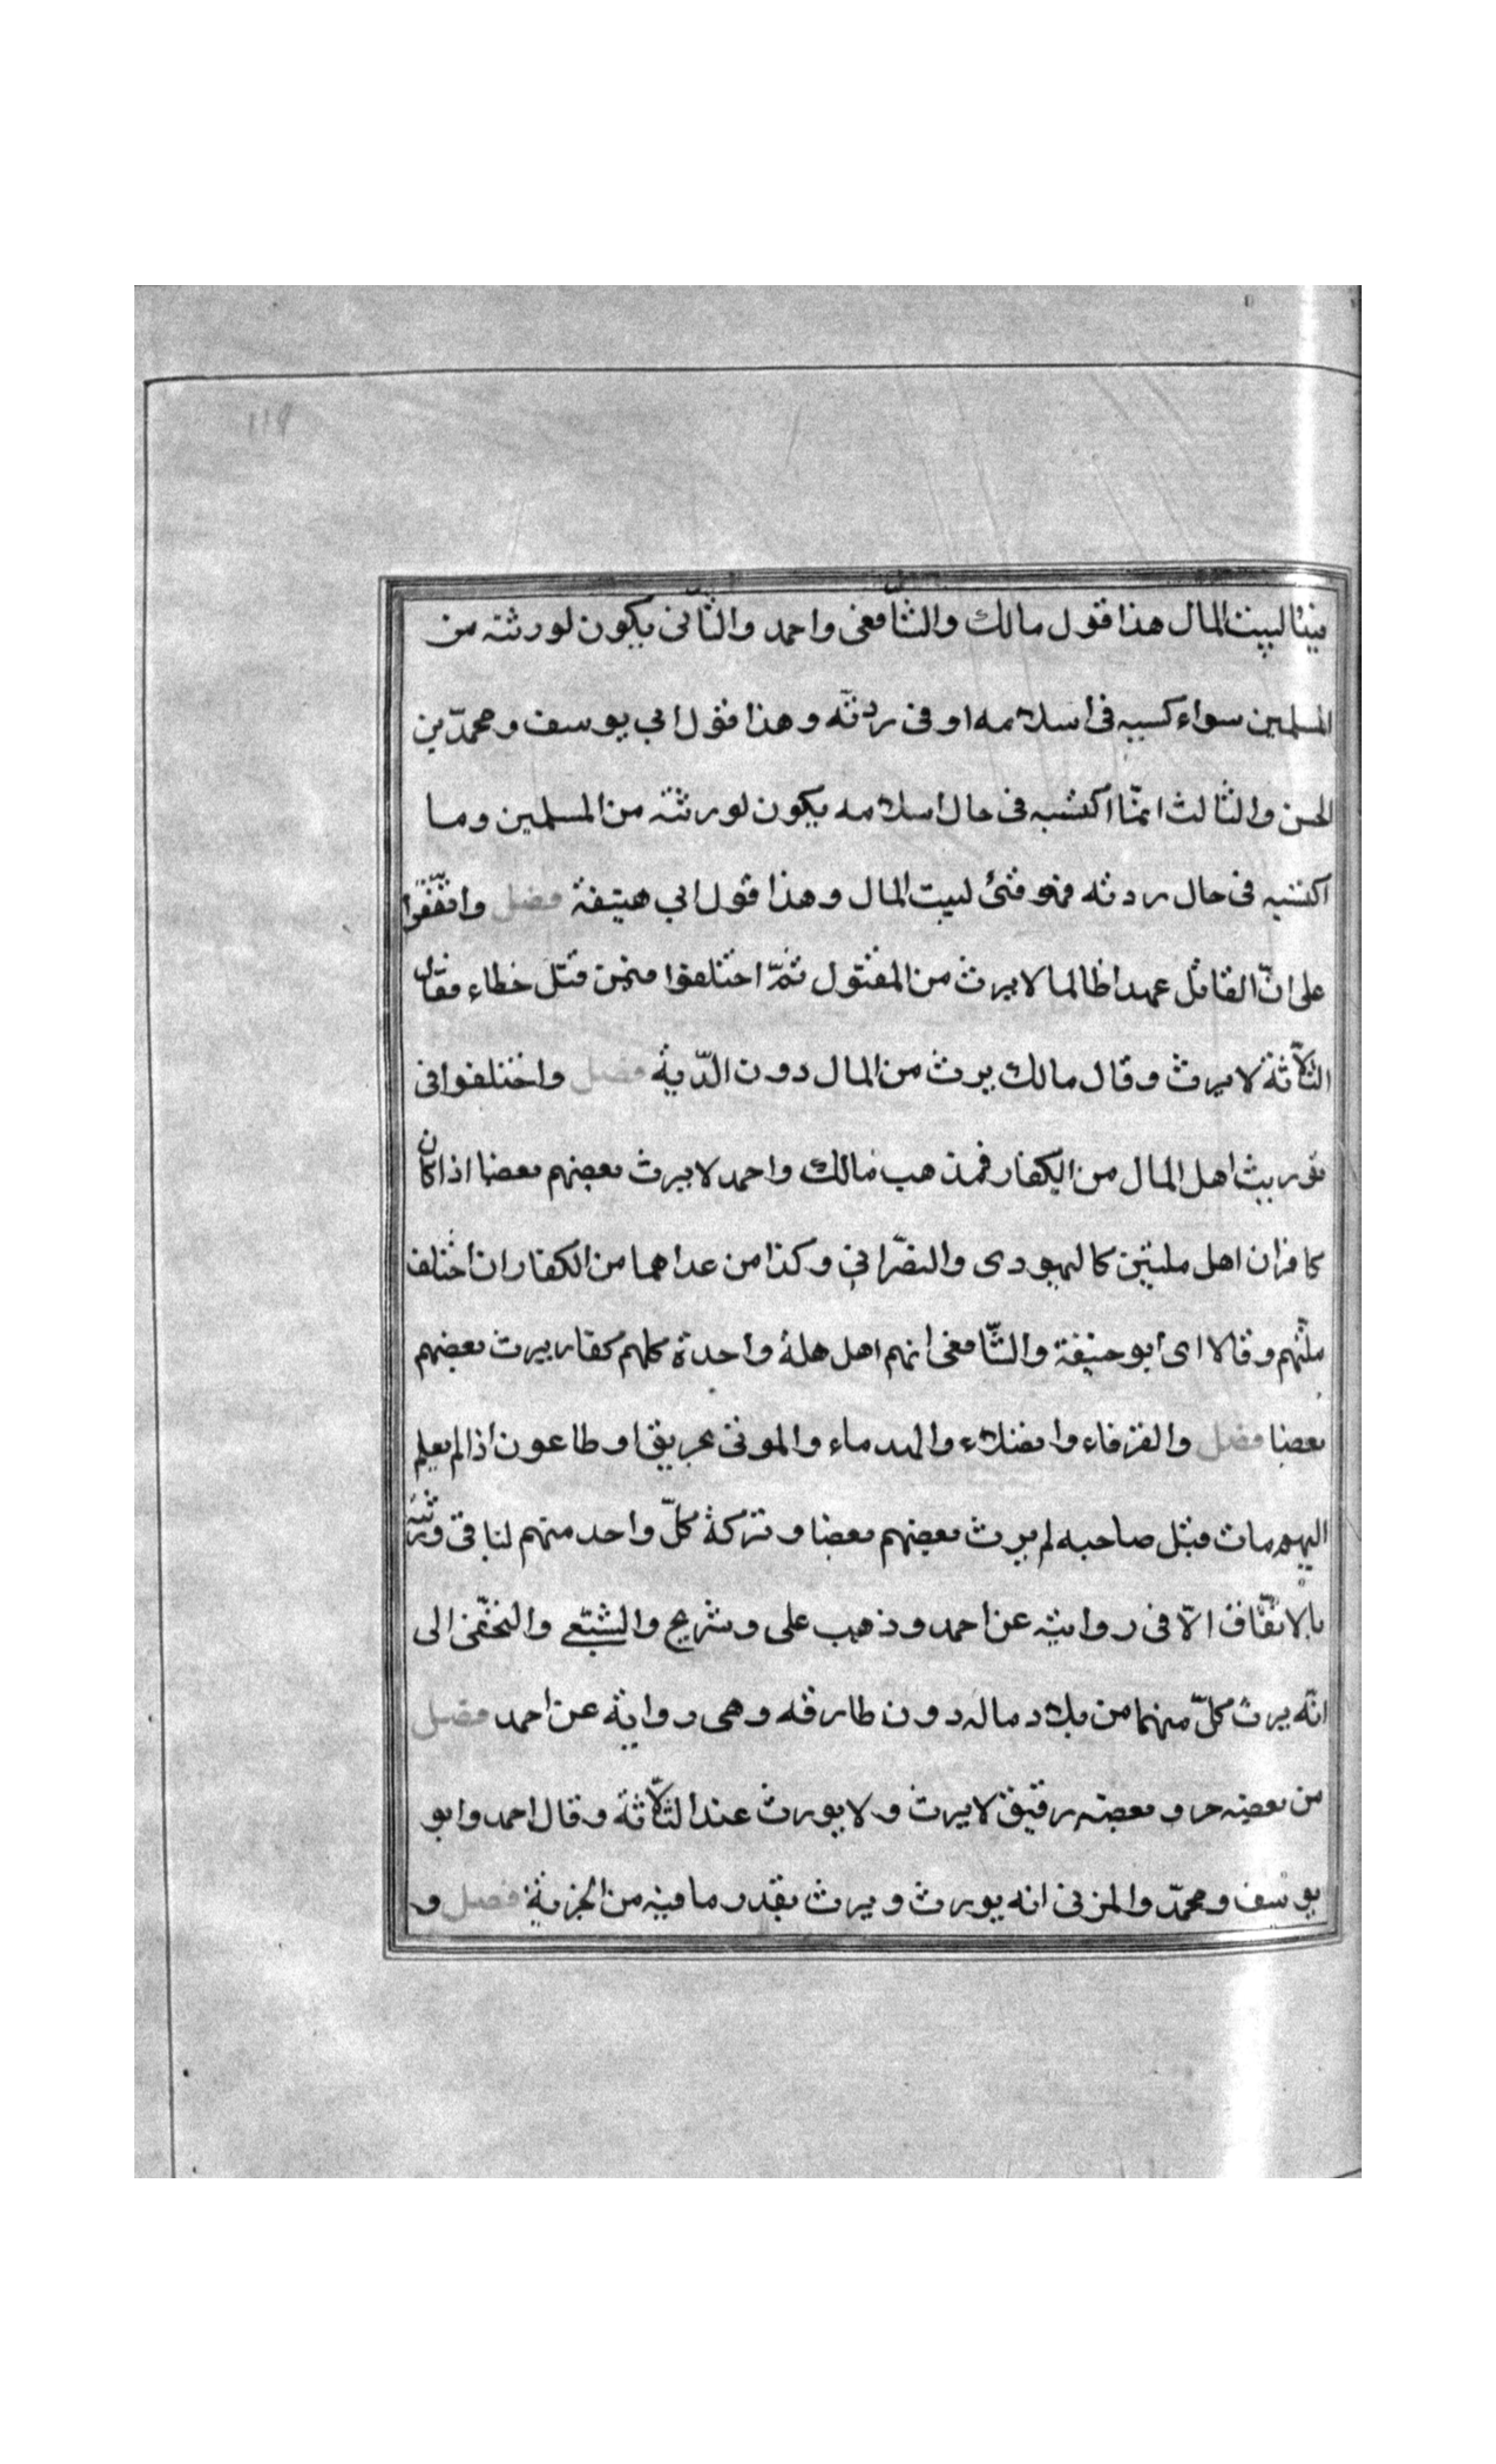 فيئا لبيت المال هذا قول مالك والشّافعى واحمد والثّانى يكون لورثته من
المسلمين سواء كسبه فى اسلامه او فى ردتّه وهذا قول ابي يوسف ومحمدّ بن
الحسن والثالث انمّا اكتسبه فى حال اسلامه يكون لورثته من المسلمين وما
اكتسبه فى حال ردته فهو فئ لبيت المال وهذا قول ابي حنيفة فصل واتفّقوا
على انّ القاتل عمدا ظالما لا يرث من المقتول ثمّ اختلفوا فيمن قتل خطاء فقال
الثّلاثة لا يرث وقال مالك يرث من المال دون الدّية فصل واختلفوا فى
توريث اهل المال من الكفار فمذهب مالك واحمد لا يرث بعضهم بعضا اذا كان
كافران اهل ملتين كاليهودى والنصّرانى وكذا من عداهما من الكفار ان اختلف
ملتّهم وقالا اى ابو حنيفة والشّافعى انهم اهل ملة واحدة كلهم كفار يرث بعضهم
بعضا فصل والغرقاء والهدماء والموتى بحريق او طاعون اذا لم يعلم
ايهم مات قبل صاحبه لم يرث بعضهم بعضا وتركة كلّ واحد منهم لباقى ورثته
بالاتفّاق الاّ فى رواية عن احمد وذهب على وشريح والشبّعى والنخعّى الى
انّه يرث كلّ منهما من تلاد ماله دون طارفه وهى رواية عن احمد فصل
من بعضه حر وبعضه رقيق لا يرث ولا يورث عند الثّلاثة وقال احمد وابو
يوسف ومحمدّ والمزنى انه يورث ويرث بقدر ما فيه من الحرية فصل و